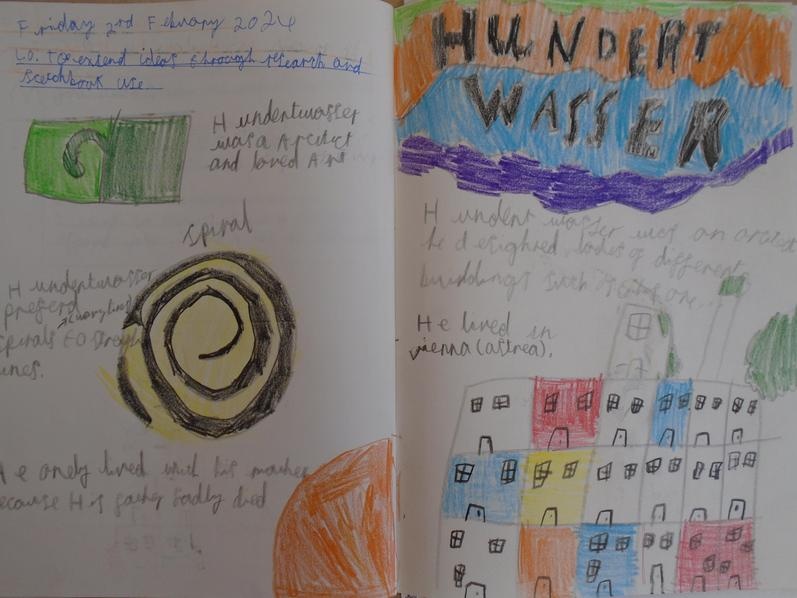 Friday 2nd February 2024
L.O. To extend ideas through research and
scetchbook use
Hundertwasser
was a Arcitict
and loved Art
spiral
Hundertwasser
preferd
spirals to
lines.
He onely lived with his mother
because His father Sadly died
HUNDERT
WASSER
Hundert wasser was an
he desighned lodes of different
buildings such as this one...
He lived in
vienna (astrea).